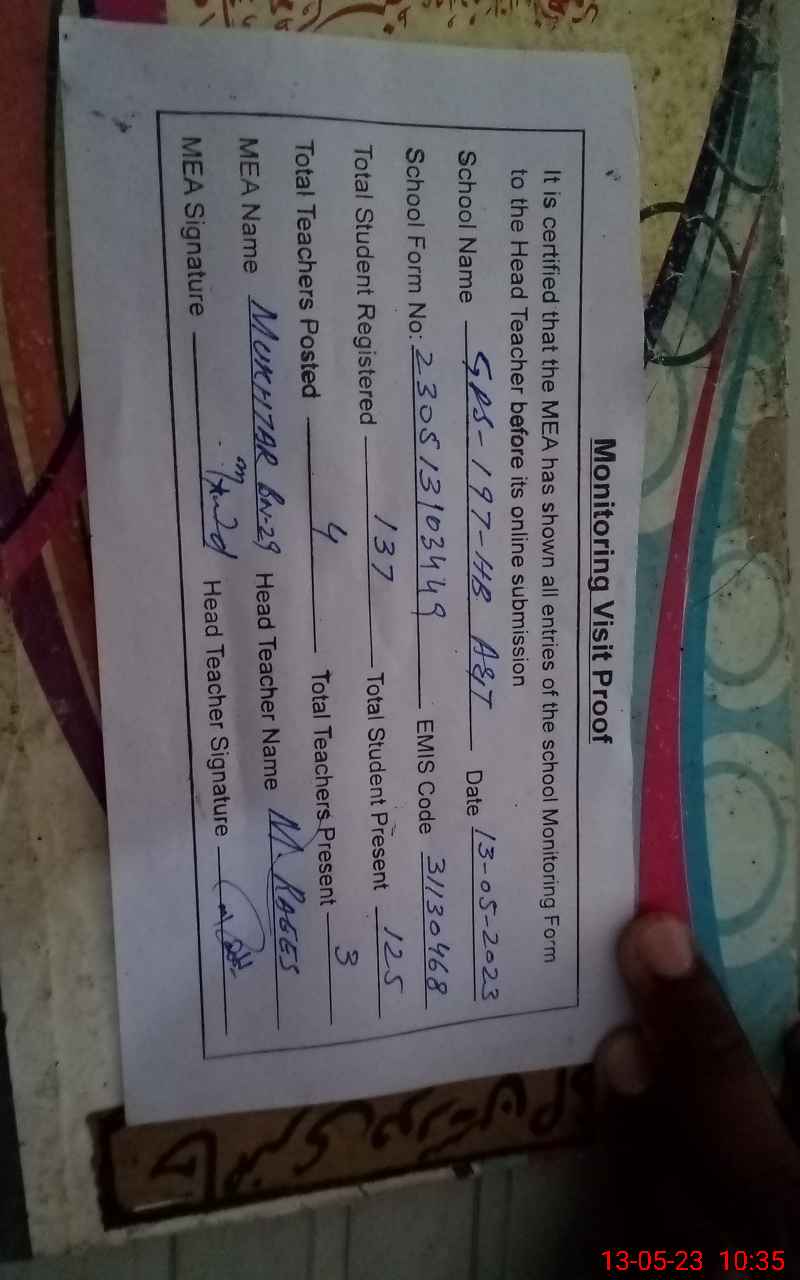 Monitoring Visit Proof
It is certified that the MEA has shown all entries of the school Monitoring Form
to the Head Teacher before its online submission
School Name GPS-197-HB A&T Date 13-05-2023
School Form No: 230513103449 EMIS Code 31130468
Total Student Registered 137 Total Student Present 125
Total Teachers Posted 4 Total Teachers Present 3
MEA Name MUKHTAR BN-29 Head Teacher Name M.
MEA Signature Head Teacher Signature
13-05-23 10:35